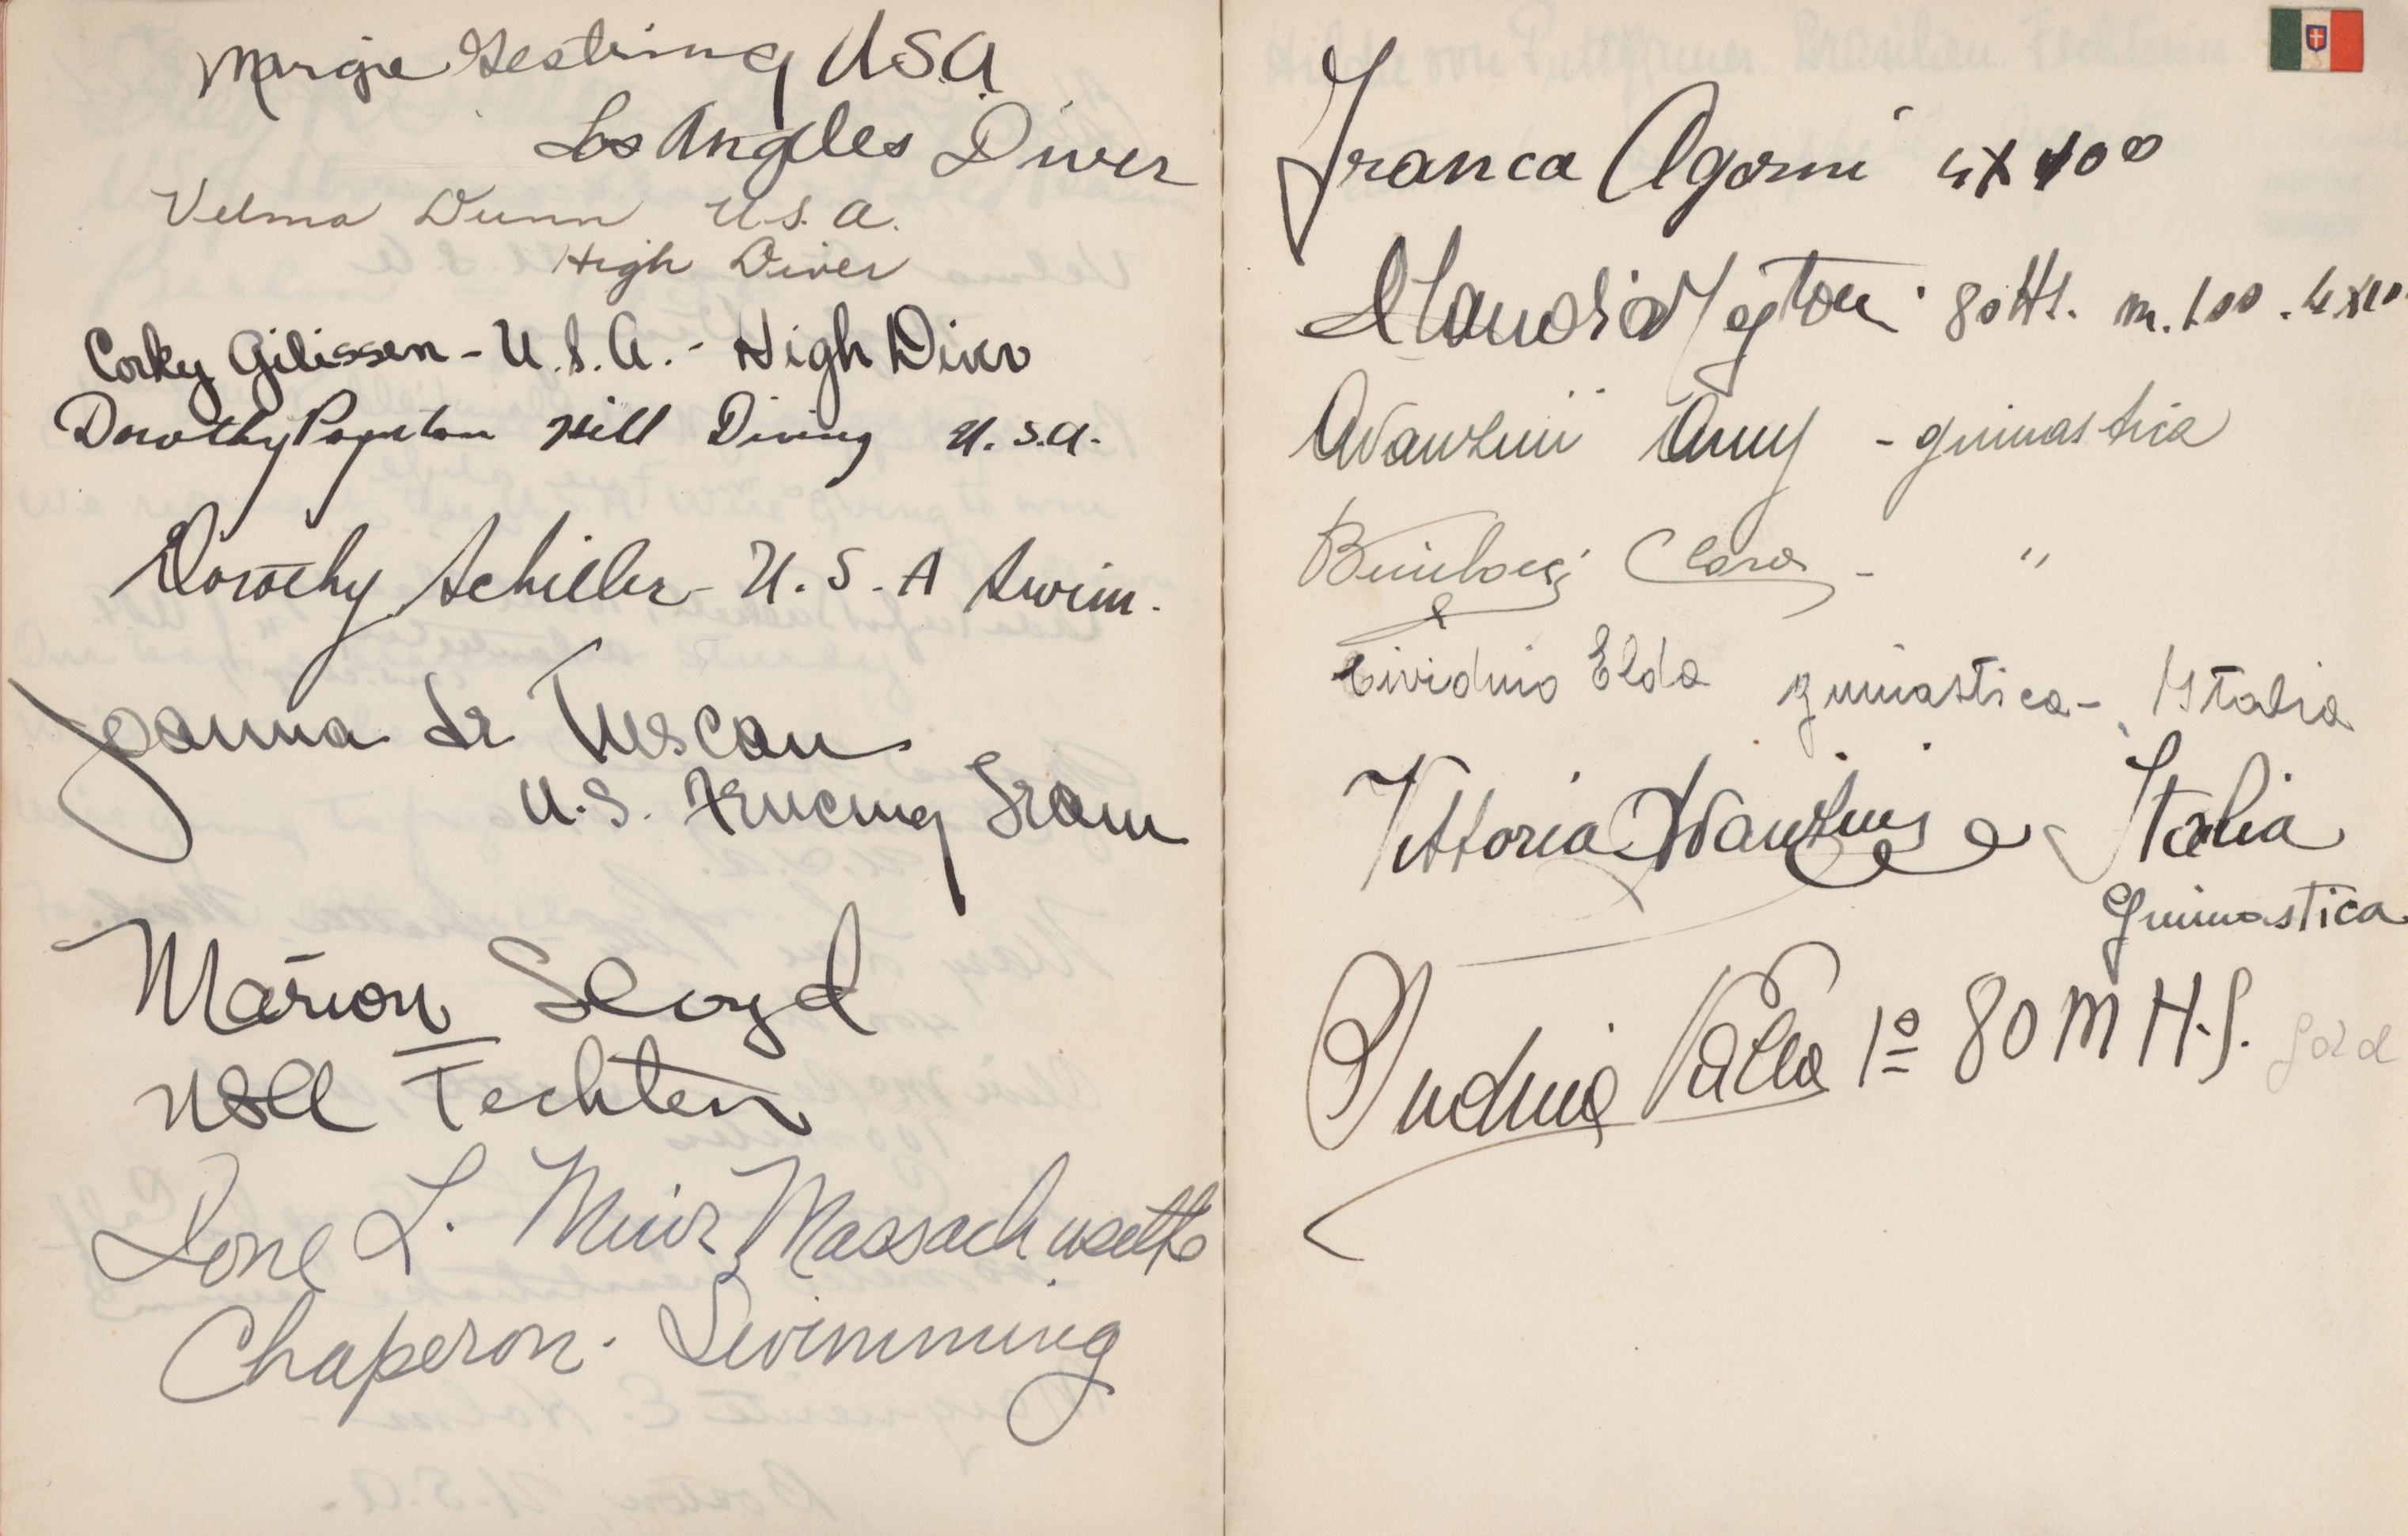 Marjorie Gestring USA
Los Angeles Diver
Velma Dunn U.S.A.
High Diver
Corky Gilissen - U.S.A. - High Diver
Dorothy Poynton Hill Diving U.S.A.
Dorothy Schiller - U.S.A Swim.
Joanna de Tuscan
U.S. Fencing Team
Marion Lloyd
USA Fechten
Ione L. Muir Massachusetts
Chaperon. Swimming
Franca Agorni 4x100
Claudia Testoni 80 Hs. m. 100. 4x100
Avanzini Anny - ginnastica
Bimbocci Clara - "
Cividino Elda ginnastica - Italia
Vittoria Avanzini Italia
Ginnastica
Ondina Valla 1º 80 M H.S. Gold